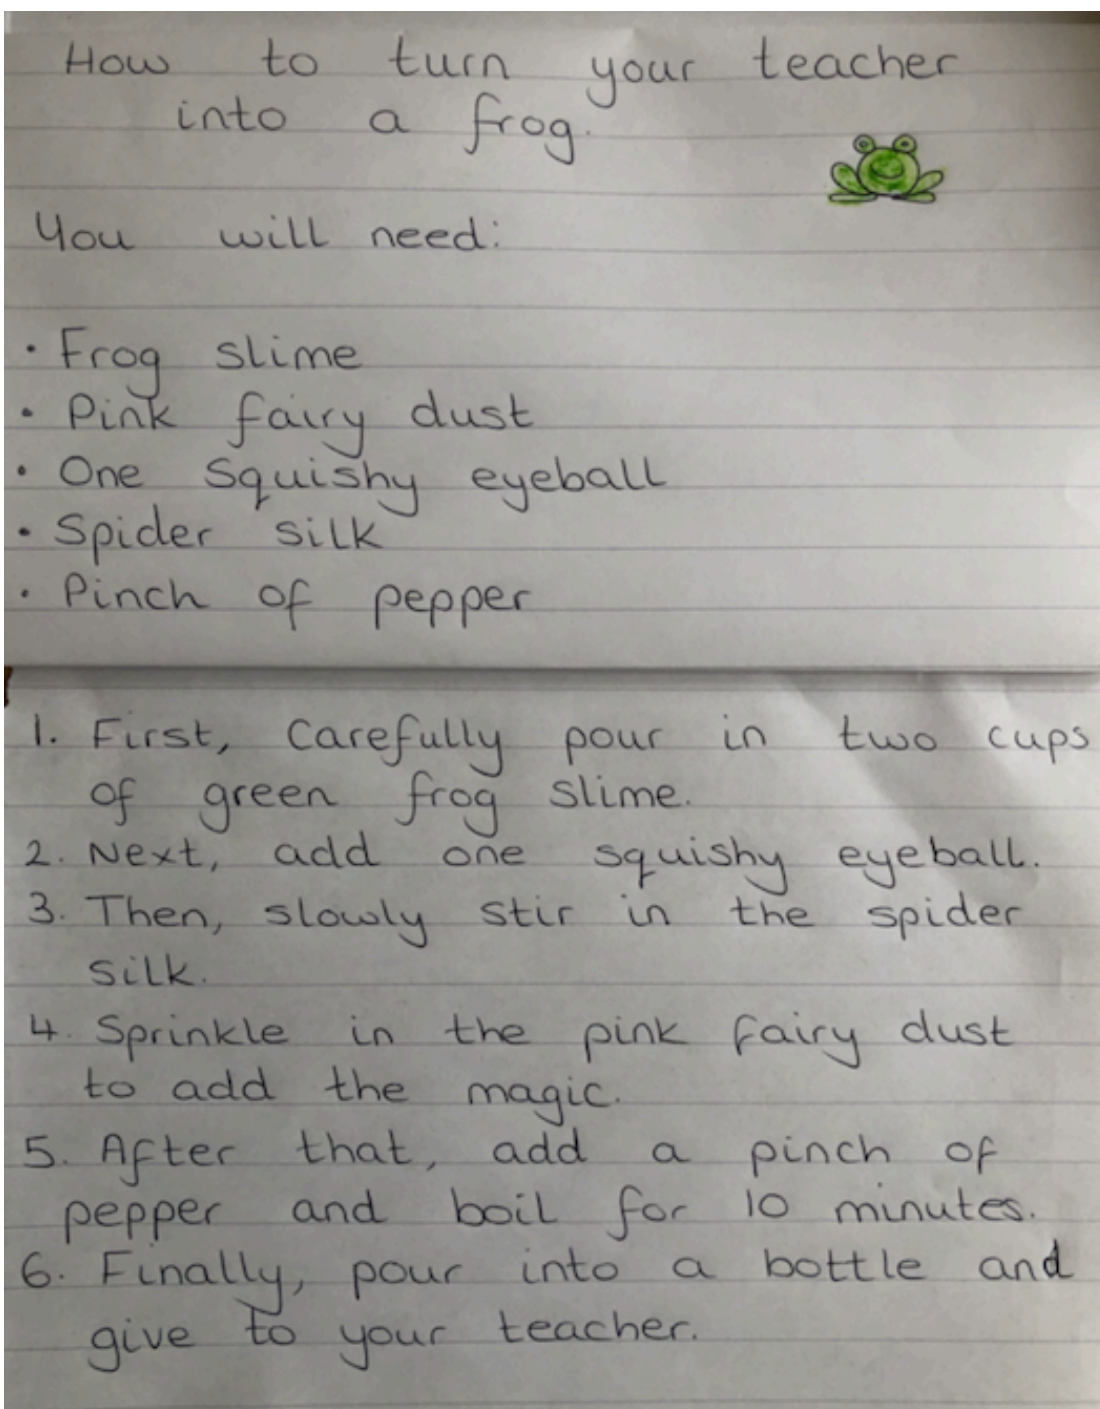 How to turn your teacher
into a frog.
You will need:
• Frog slime
• Pink fairy dust
• One Squishy eyeball
• Spider silk
• Pinch of pepper
1. First, Carefully pour in two cups
of green frog slime.
2. Next, add one squishy eyeball.
3. Then, slowly stir in the spider
silk.
4. Sprinkle in the pink fairy dust
to add the magic.
5. After that, add a pinch of
pepper and boil for 10 minutes.
6. Finally, pour into a bottle and
give to your teacher.